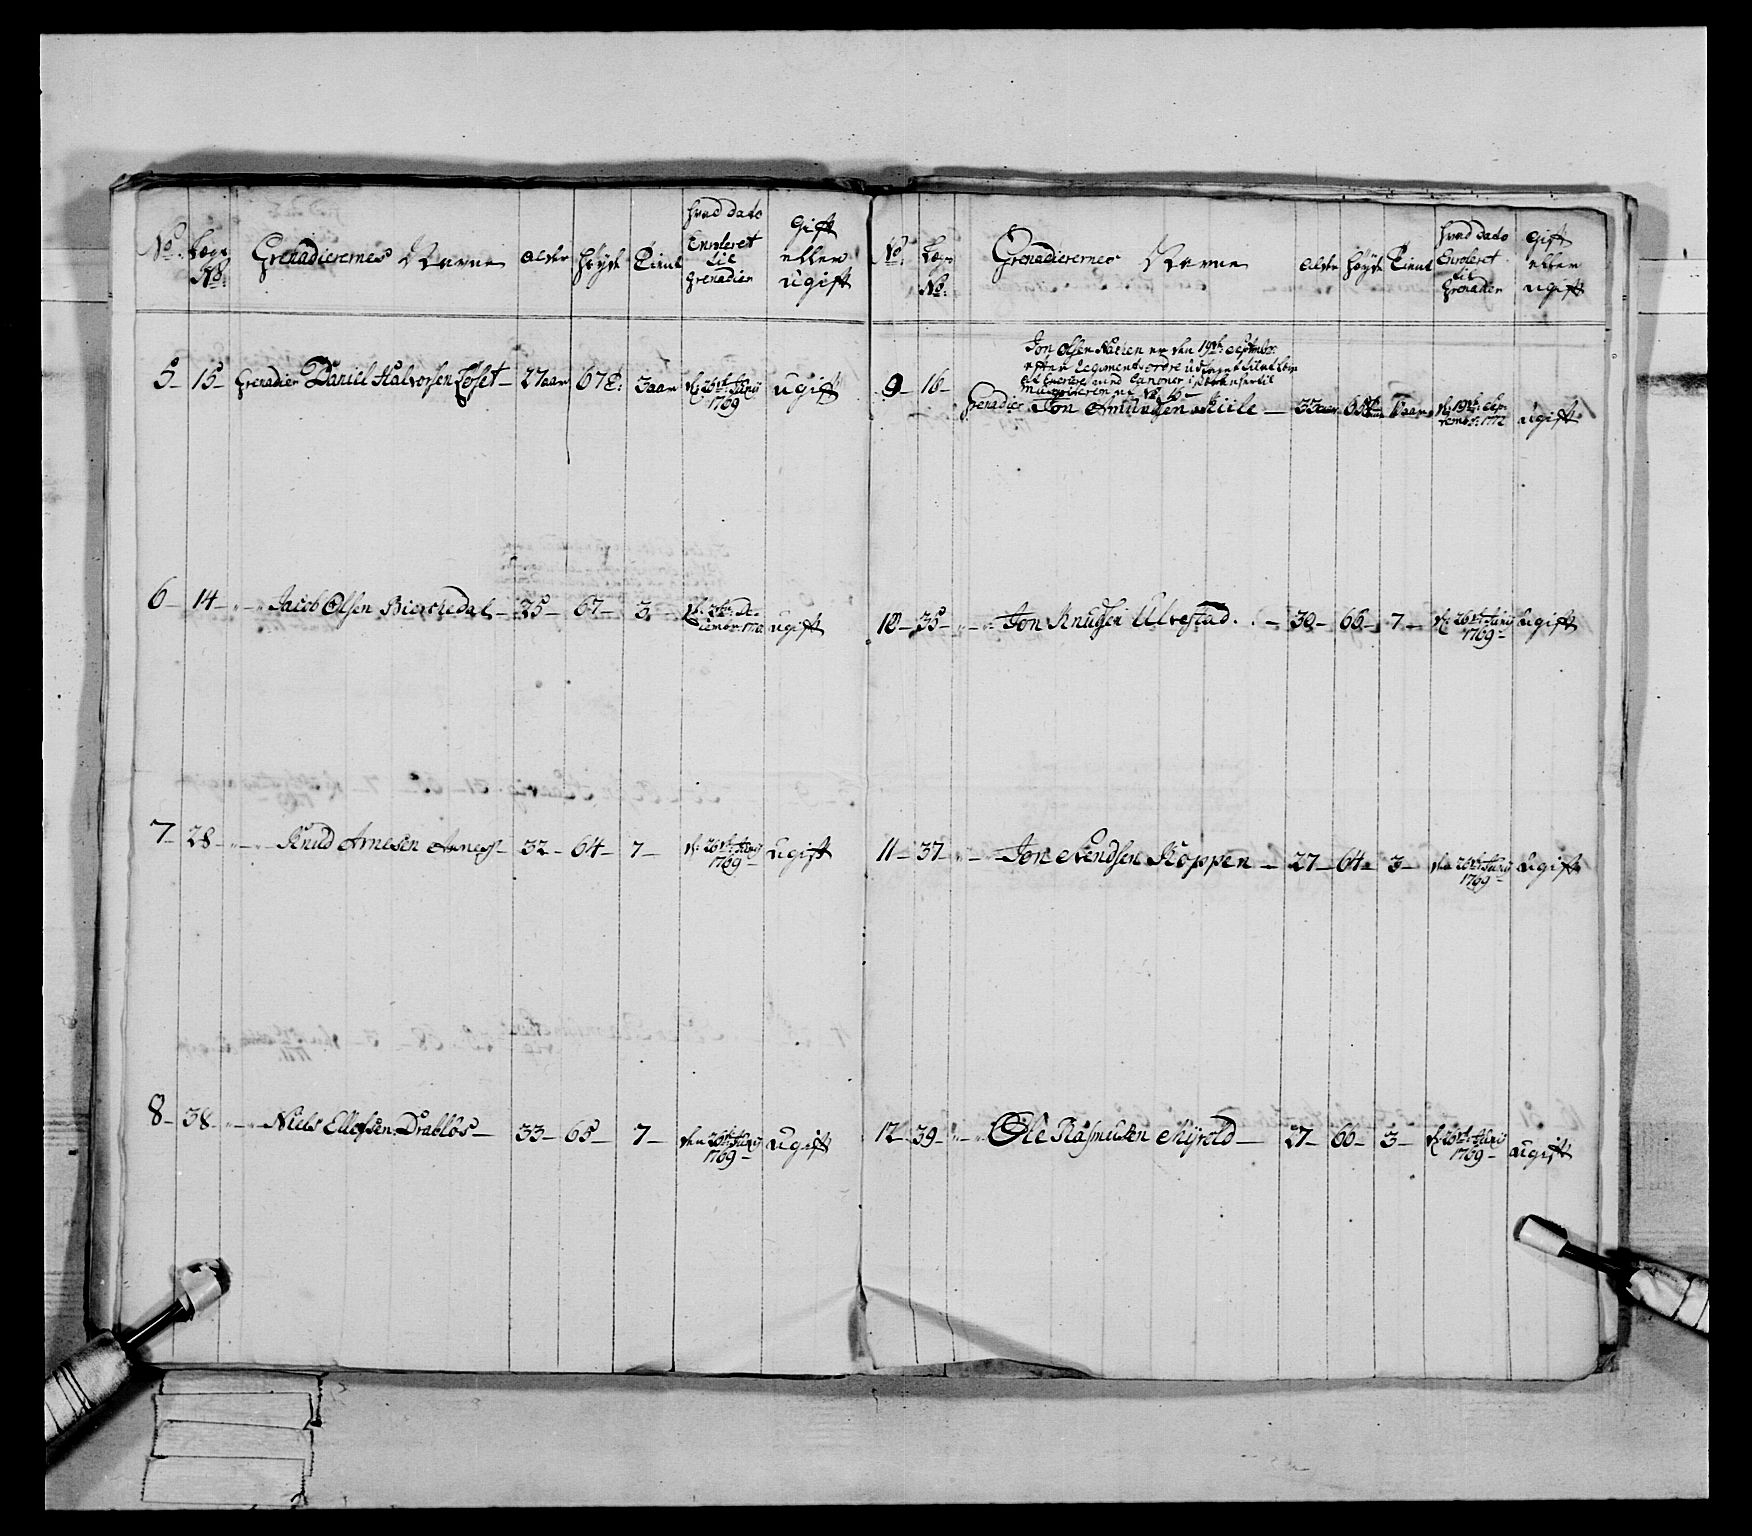 No: Lægs No: Grenadierernes Navne Alder Høyde Tient hvad dato Enroleret til Grenadier Gift eller ugift
5 – 15 – Grenadier Daniel Halvorsen Løset – 27 aar 67 3 aar d: 26de Junÿ 1769 ugift
6 – 14 – „ – „ Jacob Olsen – 25 – 67 – 3 – ugift
7 – 28 – „ – „ Knud Arnesen – 32 – 64 – 7 – d: 26de Junÿ 1769 – ugift
8 – 38 – „ – „ Niels Ellefsen Drabløs – 33 – 65 – 7 – den 26de Junÿ 1769 – ugift
No: Lægs No: Grenadierernes Navne Alder Høyde Tient hvad dato Enroleret til Grenadier Gift eller ugift
Jon Olsen er den 19de Septembr:
efter Regiments ordre
9 – 16 –
Grenadier Jon Amundsen – 33 aar d: 19de Sep-
tembr: 1772 ugift
10 – 35 – „ – „ Jon Knudsen Ulvestad – 30 – 66 – 7 – d: 26de Junÿ 1769 – ugift
11 – 37 – „ – „ Jon Svendsen Koppen – 27 – 64 – 3 – den 26de Junÿ 1769 – ugift
12 – 39 – „ – „ Ole Rasmusen Myrold – 27 – 66 – 3 – d: 26de Junÿ 1769 – ugift